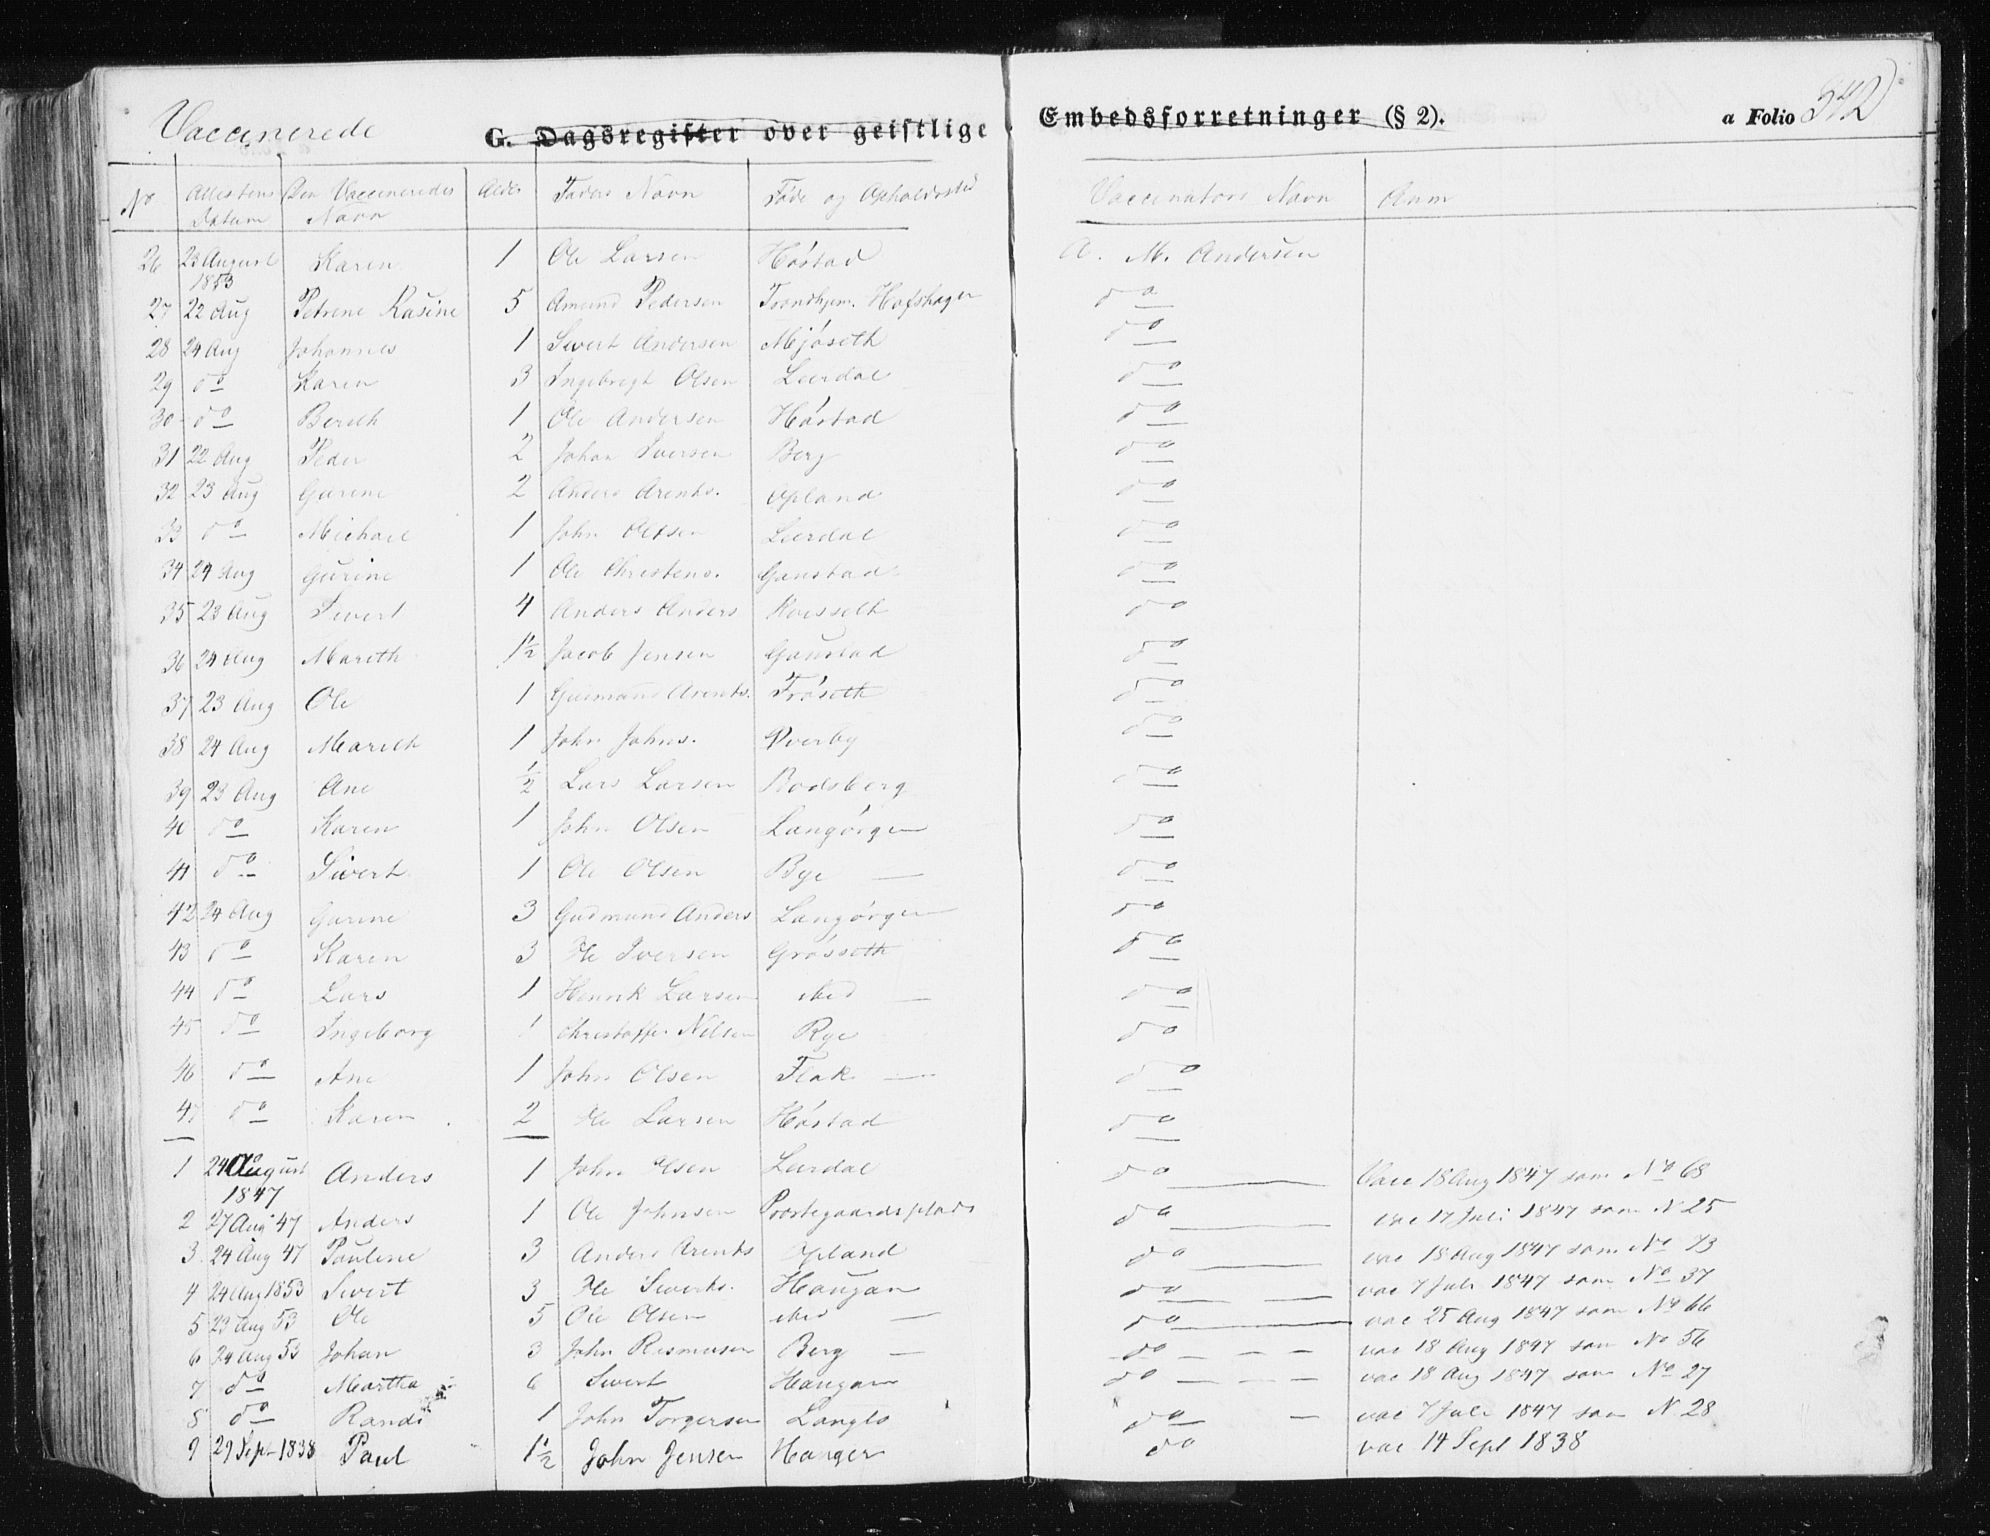 Vaccinerede G. Dagsregister over geistlige Embedsforretninger (§ 2). a Folio 342
No Attestens Datum Den Vaccineredes Navn Alder Faders Navn Føde og Opholdssted Vaccinators Navn Anm
26 23 August 1853 Karen 1 Ole Larsen Høstad A. M. Andersen
27 22 Aug Petrine Rasine 5 Amund Pedersen Trondhjem. Hofshagen do
28 24 Aug Johannes 1 Sivert Andersen Mjøseth do
29 do Karen 3 Ingebrigt Olsen Leerdal do
30 do Berith 1 Ole Andersen Høstad do
31 22 Aug Peder 2 Johan Iversen Berg do
32 23 Aug Gurine 2 Anders Arents. Opland do
33 do Michael 1 John Olsen Leerdal do
34 24 Aug Gurine 1 Ole Christens. Ganstad do
35 23 Aug Sivert 4 Anders Anders do
36 24 Aug Marith 1½ Jacob Jensen Ganstad do
37 23 Aug Ole 1 Gudmund Arents. Frøseth do
38 24 Aug Marith 1 John Johns. Qverby do
39 23 Aug Ane ½ Lars Larsen Bodsberg do
40 do Karen 1 John Olsen Langørgen do
41 do Sivert 1 Ole Olsen Bye do
42 24 Aug Gurine 3 Gudmund Anders Langørgen do
43 do Karen 3 Ole Iversen Grøsseth do
44 do Lars 1 Henrik Larsen ibid do
45 do Ingeborg 1 Christoffer Nilsen Rye do
46 do Ane 1 John Olsen Flak do
47 do Karen 2 Ole Larsen Høstad do
1 24 August 1847 Anders 1 John Olsen Leerdal do Vacc 18 Aug 1847 som No 68
2 27 Aug 47 Anders 1 Ole Johnsen Præstegaardsplads do vac 17 Juli 1847 som N 25
3 24 Aug 47 Pauline 3 Anders Arents Opland do vac 18 Aug 1847 som No 73
4 24 Aug 1853 Sivert 3 Ole Siverts. Haugan do vac 7 Juli 1847 som No 37
5 23 Aug 53 Ole 5 Ole Olsen ibid do vac 25 Aug 1847 som No 66
6 24 Aug 53 Johan 3 John Rasmusen Berg do vac 18 Aug 1847 som No 56
7 do Martha 6 Sivert Haugan do vac 18 Aug 1847 som No 27
8 do Randi 1 John Torgersen Langlo do vac 7 Juli 1847 som N 28
9 29 Sept 1838 Paul 1½ John Jensen Hanger do vac 14 Sept 1838